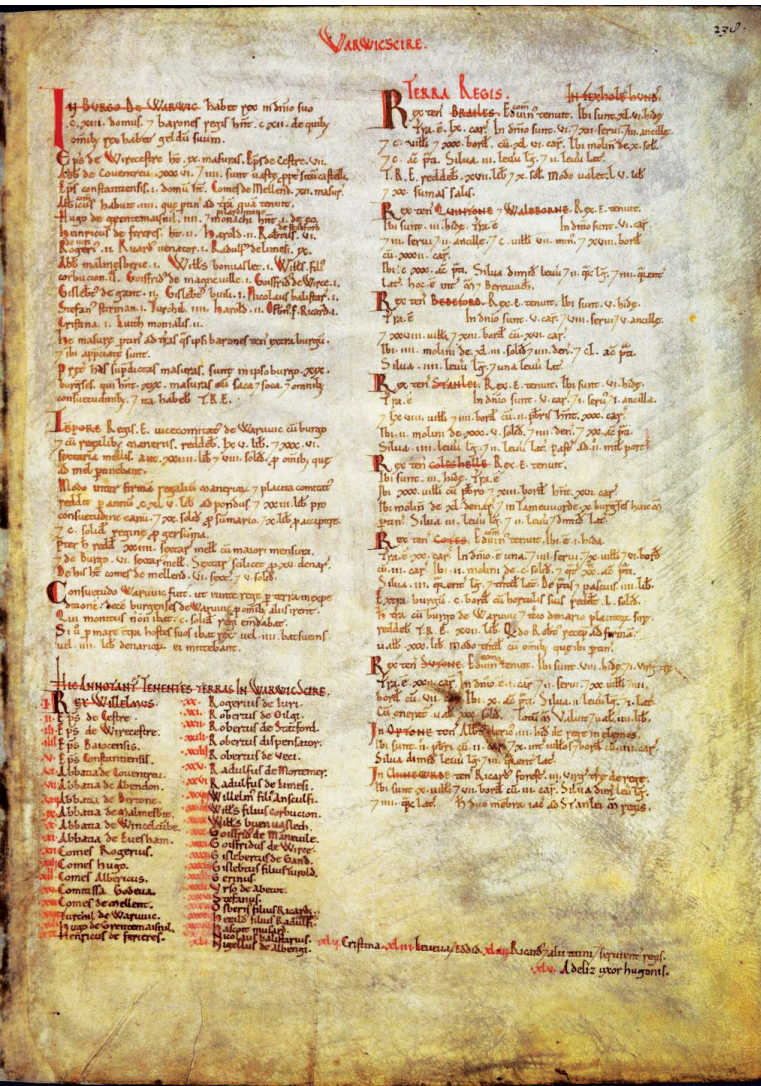 238.
WARWICSCIRE.
IN BURGO DE WARWIC habet rex in dn̄io suo
.c.xiii. domus. ⁊ barones regis hn̄t .c.xii. de quib;
omib; rex habet geldū suum.
Ep̄s de Wirecestre ht̄ .ix. masuras. Ep̄s de Cestre .vii.
Abb̄ de Couentreu .xxxvi. ⁊ .iiii. sunt uastę ꝓpt̄ sitū castelli.
Ep̄s constantiensis .i. domū ht̄. Comes de Mellend .xii. masur̄.
Hugo de grentemaisnil .iiii. ⁊ monachi hn̄t .i. de eo.
Henricus de fereres ht̄ .ii. Harold .ii. Robt̄us .vi.
Rogerꝰ .ii. Ricard uenator .i. Radulf̄ de limesi .ix.
Abb̄ malmesberie .i. Will̄s bonuaslet .i. Will̄s filꝰ
corbucion .ii. Goisfrid̄ de magneuille .i. Goisfrid̄ de Wirce .i.
Gislebt̄ de gant .ii. Gislebt̄ budi .i. Nicolaus balistar̄ .i.
Stefan̄ stirman .i. Turchil .iiii. Harold .ii. Osbern̄ .f. Ricard .i.
Cristina .i. Luith monialis .ii.
hę masurę ptin̄ ad tr̄as q̄s ipsi barones ten̄ extra burgū.
⁊ ibi appciatę sunt.
Pręter has supdictas masuras. sunt in ipso burgo .xix.
burgses. qui hn̄t .xix. masuras cū saca ⁊ soca ⁊ omib;
consuetudinib;. ⁊ ita habeb̄ T.R.E.
TEPORE Regis .E. uicecomitat̄ de Waruuic cū burgo
⁊ cū regalib; maneriis. reddeb̄ .lxv. lib̄. ⁊ .xxxvi.
sextaria mellis. aut .xxiiii. lib̄ ⁊ viii. solid̄. ꝓ omib; quę
ad mel ptinebant.
Modo inter firmā regaliū manerioꝝ ⁊ placita comitat̄
reddit p annū .c.xl.v. lib̄ ad pondus. ⁊ xxiii. lib̄ pro
consuetudine canū. ⁊ xx. solid̄ ꝓ sumario. ⁊ x. lib̄ ꝓ accipitre.
⁊ c. solid̄ reginę ꝓ gersuma.
Pręt̄ h̄ redd̄ xxiiii. sextar̄ mell̄ cū maiori mensura.
⁊ de Burgo .vi. sextar̄ mell̄. Sextar̄ scilicet ꝓ xv. denar̄.
De his ht̄ comes de mellend .vi. sext̄. ⁊ v. solid̄.
Consuetudo Waruuic fuit. ut eunte rege p terrā in expe-
ditione. decē burgenses de Waruuic ꝓ omib; aliis irent.
Qui monitus non ibat. c. solid̄ regi emdabat.
Si ū p mare cont̄ hostes suos ibat rex. uel .iiii. batsueins
uel .iiii. lib̄ denarioꝝ ei mittebant.
HIC ANNOTANT̄ TENENTES TERRAS IN WARWICSCIRE.
.i. REX WILLELMVS.
.ii. Ep̄s de Cestre.
.iii. Ep̄s de Wirecestre.
.iiii. Ep̄s Baiocensis.
.v. Ep̄s Constantiensis.
.vi. Abbatia de Couentreu.
.vii. Abbatia de Abendon.
.viii. Abbatia de Bertone.
.ix. Abbatia de Malmesb̄ie.
.x. Abbatia de Wincelcūbe.
.xi. Abbatia de Euesham.
.xii. Comes Rogerius.
.xiii. Comes Hugo.
.xiiii. Comes Albericus.
.xv. Comitissa Godeua.
.xvi. Comes de mellent.
.xvii. Turchil de Waruuic.
.xviii. Hugo de Grentemaisnil.
.xix. Henricus de ferieres.
.xx. Rogerius de Iuri.
.xxi. Robertus de Oilgi.
.xxii. Robertus de Statford.
.xxiii. Robertus dispensator.
.xxiiii. Robertus de Veci.
.xxv. Radulfus de Mortemer.
.xxvi. Radulfus de Limesi.
.xxvii. Willelm̄ filiꝰ Ansculfi.
.xxviii. Will̄s filius corbucion.
.xxix. Will̄s buenuasleth.
.xxx. Goisfrid̄ de Maneuile.
.xxxi. Goisfridus de Wirce.
.xxxii. Gislebertus de Gand.
.xxxiii. Gislebt̄us filius Turold.
.xxxiiii. Gerinus.
.xxxv. Vrso de Abetot.
.xxxvi. Stefanus.
.xxxvii. Osbern̄ filius Ricardi.
.xxxviii. Herald filius Radulfi.
.xxxix. Hascoit musard.
.xl. Nicolaus balistarius.
.xli. Nigellus de Albengi.
.xlii. Cristina. .xliii. Leueua ⁊ Eddid. .xliiii. Ricard ⁊ alii taini ⁊ seruient̄ regis.
.xlv. Adeliz uxor hugonis.
TERRA REGIS. IN FEXHOLE HVND̄.
Rex ten̄ BRAILES. Eduin̄ com̄ tenuit. Ibi sunt .xl.vi. hidę.
Tr̄a .ē. lx. car̄. In dn̄io sunt .vi. ⁊ xii. serui. ⁊ iii. ancillę.
⁊ c. uill̄i ⁊ xxx. bord̄ cū .xl.vi. car̄. Ibi molin̄ de .x. sol̄.
⁊ .c. ac̄ pti. Silua .iii. leuu lḡ. ⁊ ii. leuu lat̄.
T.R.E. reddeb̄ .xvii. lib̄ ⁊ x. sol̄. Modo ualet .l.v. lib̄
⁊ xx. sumas salis.
Rex ten̄ QVINTONE ⁊ WALEBORNE. Rex .E. tenuit.
Ibi sunt .iii. hidę. Tr̄a .ē. In dn̄io sunt .vi. car̄.
⁊ iii. serui ⁊ ii. ancillę. ⁊ .c. uill̄i .vii. min̄. ⁊ xviii. bord̄
cū .xxxii. car̄.
Ibi .c.xxx. ac̄ pti. Silua dimid̄ leuu ⁊ ii. q̄rent̄ lḡ. ⁊ iiii. q̄rent̄
lat̄.
Rex ten̄ BEDEFORD. Rex .E. tenuit. Ibi sunt .v. hidę.
Tr̄a .ē. In dn̄io sunt .v. car̄. ⁊ viii. serui ⁊ v. ancillę.
⁊ xxviii. uill̄i ⁊ xiii. bord̄ cū .xvi. car̄.
Ibi .iiii. molini de .xl.iii. solid̄ ⁊ iiii. den̄. ⁊ cl. ac̄ pti.
Silua .iiii. leuu lḡ. ⁊ una leuu lat̄.
Rex ten̄ STANLEI. Rex .E. tenuit. Ibi sunt .vi. hidę.
Tr̄a .ē. In dn̄io sunt .v. car̄. ⁊ i. seruꝰ ⁊ i. ancilla.
⁊ lxviii. uill̄i ⁊ iiii. bord̄ cū .ii. pbr̄is hn̄t .xxx. car̄.
Ibi .ii. molini de .xxx.v. solid̄. ⁊ iiii. den̄. ⁊ xx. ac̄ pti.
Silua .iiii. leuu lḡ. ⁊ ii. leuu lat̄. past̄ ad .ii. mil̄ porc̄.
Rex ten̄ COLESHELLE. Rex .E. tenuit.
Ibi sunt .iii. hidę. Tr̄a .ē.
Ibi .xxx. uill̄i cū pbr̄o ⁊ xiii. bord̄ hn̄t .xvi. car̄.
Ibi molin̄ de .xl. denar̄. ⁊ in Tameuuorde .x. burgses huic m̄
ptin̄. Silua .iii. leuu lḡ. ⁊ ii. leuu ⁊ dimid̄ lat̄.
Rex ten̄ COTES. Eduin̄ com̄ tenuit. Ibi .ē. i. hida.
Tr̄a .ē. xx. car̄. In dn̄io .ē. una. ⁊ iii. serui. ⁊ lx. uill̄i ⁊ v. bord̄
cū .iii. car̄. Ibi .ii. molini de .c. solid̄.
Silua .iii. q̄rent̄ lḡ. ⁊ tn̄td̄ lat̄. De ptis ⁊ pascuis .iiii. lib̄.
Extra burgū .c. bord̄ cū hortulis suis reddt̄ .l. solid̄.
h̄ tra cū burgo de Waruuic ⁊ tcio denario placitoꝝ sirę
reddeb̄ T.R.E. xvii. lib̄. Qdo Robt̄ recep̄ ad firmā.
ualb̄ .xxx. lib̄. Modo tntd̄ cū omib; quę ibi ptin̄.
Rex ten̄ SVTONE. Eduin̄ com̄ tenuit. Ibi sunt .viii. hidę ⁊ i. virḡ træ.
Tr̄a .ē. xxii. car̄. In dn̄io .ē. i. car̄. ⁊ ii. serui. ⁊ xx. uill̄i ⁊ iiii.
bord̄ cū .vii. car̄. Ibi .x. ac̄ pti. Silua .ii. leuu lḡ. ⁊ i. lat̄.
Valuit ⁊ ual̄ .iiii. lib̄.
In OPTONE ten̄ Alb̄ clericꝰ .iii. hid̄ de rege in elemos̄.
Ibi sunt .ii. pbr̄i cū .ii. car̄. ⁊ x. int̄ uill̄os ⁊ bord̄ cū .iii. car̄.
Silua dimid̄ leuu lḡ. ⁊ iii. q̄rent̄ lat̄.
In CHINEWRDE ten̄ Ricard̄ forest̄ .iii. virḡ træ de rege.
Ibi sunt .x. uill̄i ⁊ vii. bord̄ cū .iii. car̄. Silua dim̄ leuu lḡ.
⁊ iiii. q̄r̄ lat̄. H̄ duo mēbra iac̄ ad STANLEI m̄ regis.